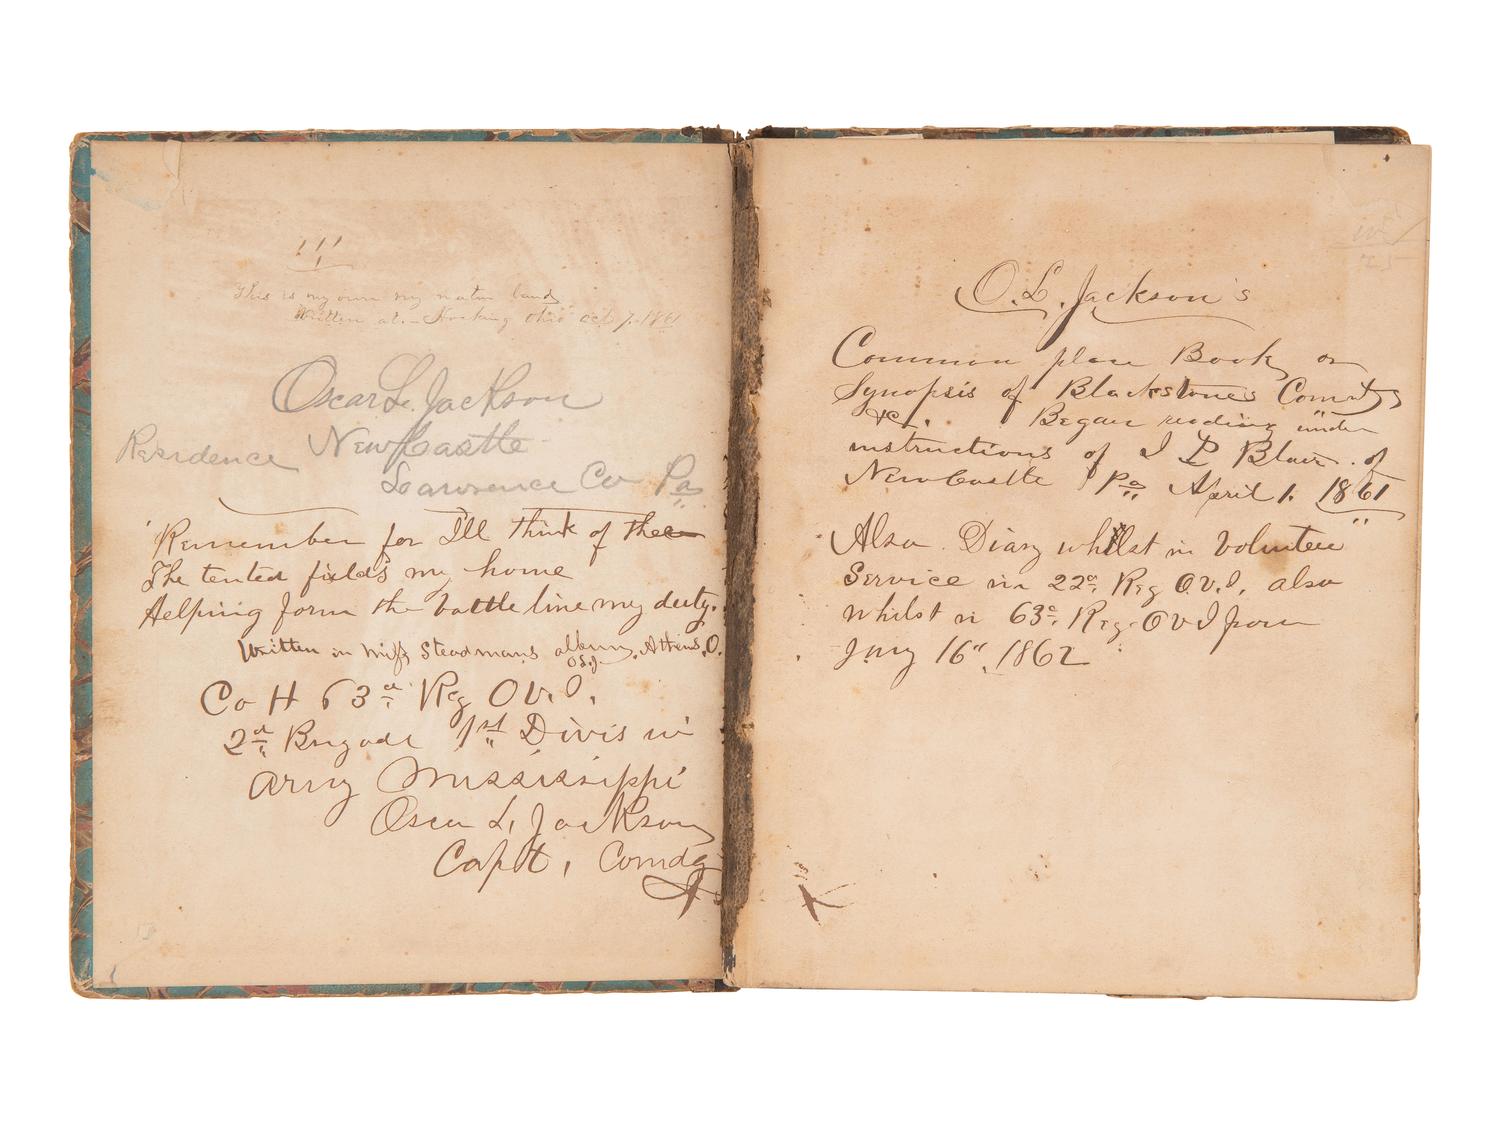 This is my own my native land
Written at - Hocking Ohio Oct 7. 1861
Oscar L. Jackson
New Castle
Residence
Lawrence Co Pa
Remember for I'll think of thee
The tented field's my home
Helping form the battle line my duty.
Written in Miss Steadmans album, Athens, O.
O.L.J.
Co H 63d Reg O.V.I.
2d Brigade 1st Divis in
Army Mississippi
Oscar L. Jackson
Capt, Comdg
O. L. Jackson's
Common place Book or
Synopsis of Blackstone's Comnts
&c. Began reading under
instructions of D B Blair of
New Castle Pa April 1. 1861
Also Diary whilst in Volunteer
Service in 22d Reg O.V.I. also
whilst in 63d Reg O V I from
Jany 16" 1862